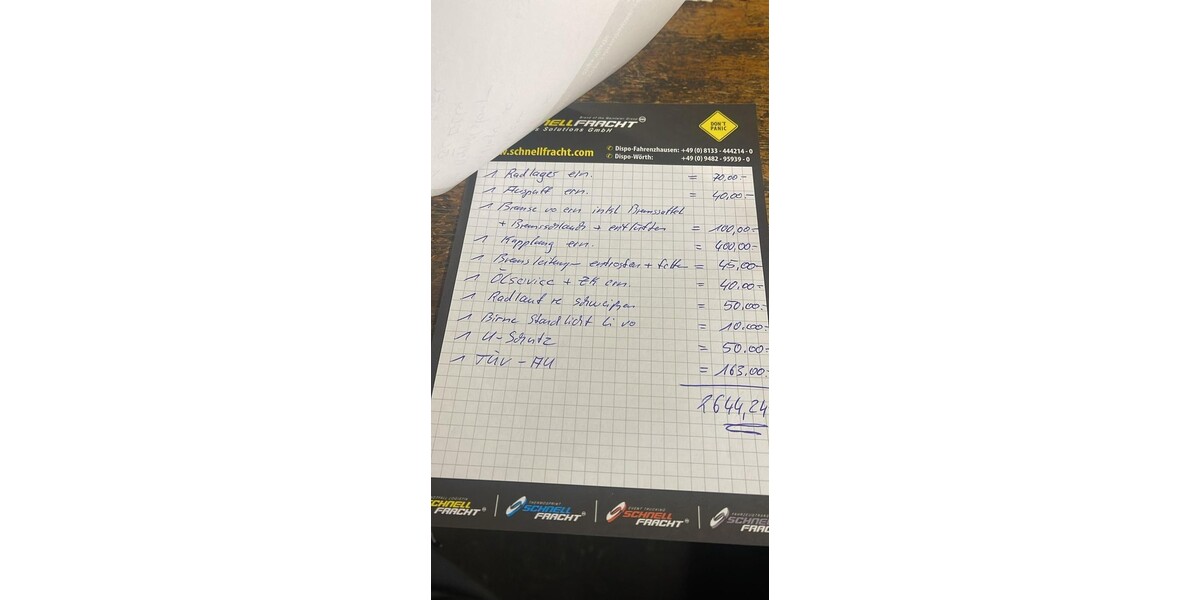 NELLFRACHT
s Solutions GmbH
DON'T
PANIC
.schnellfracht.com
Dispo-Fahrenzhausen: +49 (0) 8133 - 444214 - 0
Dispo-Wörth: +49 (0) 9482 - 95939 - 0
1 Radlager ern. = 70,00.-
1 Auspuff ern. = 40,00.-
1 Bremse vo ern inkl Bremssattel
+ Bremsschlauch + entlüften = 100,00-
1 Kupplung ern. = 400,00-
1 Bremsleitungen entrosten + fetten = 45,00-
1 Ölservice + ZK ern. = 40,00-
1 Radlauf re schweißen = 50,00-
1 Birne Standlicht li vo = 10,00-
1 U-Schutz = 50,00-
1 TÜV - AU = 163,00-
2644,24
SCHNELL
FRACHT
SCHNELL
FRACHT
SCHNELL
FRACHT
SCHNELL
FRAC